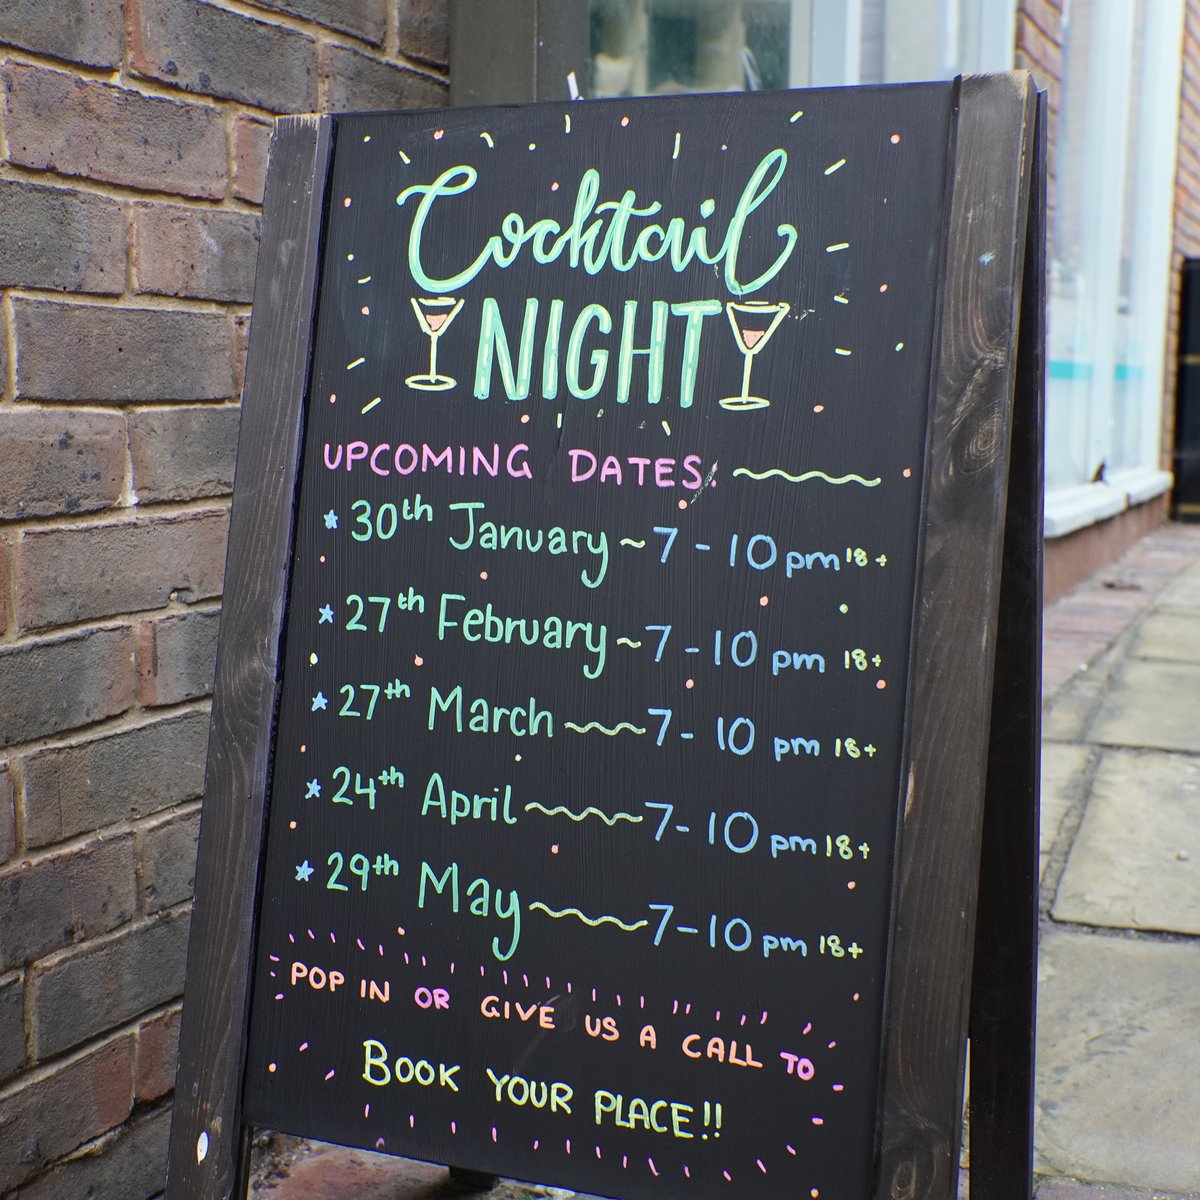 Cocktail
NIGHT
UPCOMING DATES:
30th January ~ 7 - 10 pm 18+
27th February ~ 7 - 10 pm 18+
27th March ~ 7 - 10 pm 18+
24th April ~ 7 - 10 pm 18+
29th May ~ 7 - 10 pm 18+
POP IN OR GIVE US A CALL TO
BOOK YOUR PLACE!!